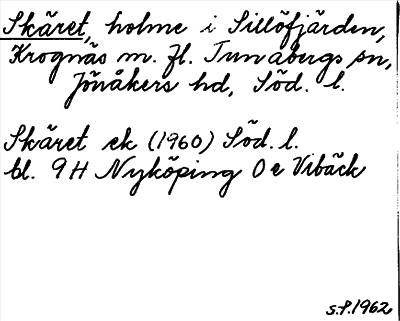 Skäret, holme i Sillöfjärden,
Krognäs m. fl. Tunabergs sn,
Jönåkers hd, Söd. l.
Skäret ek (1960) Söd. l.
bl. 9 H Nyköping 0 e Vibäck
S.P. 1962